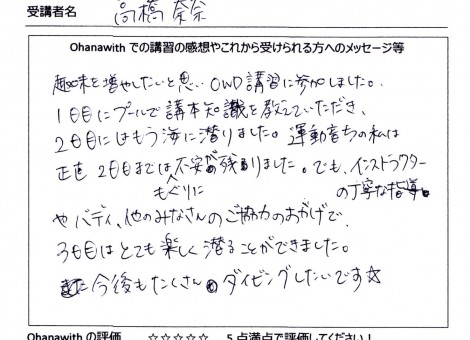 受講者名 高橋 奈奈
Ohanawith での講習の感想やこれから受けられる方へのメッセージ等
趣味を増やしたいと思い OWD講習に参加しました。
1日目にプールで講本知識を教えていただき、
2日目にはもう海に潜りました。運動音ちの私は
正直 2日目までは不安が残りました。でも、インストラクター
もぐりに の丁寧な指導。
やバディ、他のみなさんのご協力のおかげで、
3日目はとても楽しく潜ることができました。
また今後もたくさんダイビングしたいです☆
Ohanawith の評価 ☆☆☆☆☆ 5点満点で評価してください！